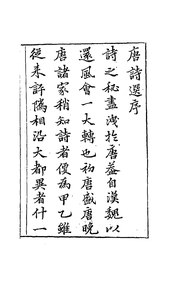 唐詩選序
詩之秘盡洩於唐益自漢魏以
還風會一大轉也初唐盛唐晚
唐諸家稍知詩者便為甲乙雖
從来評隲相沿大都異者什一